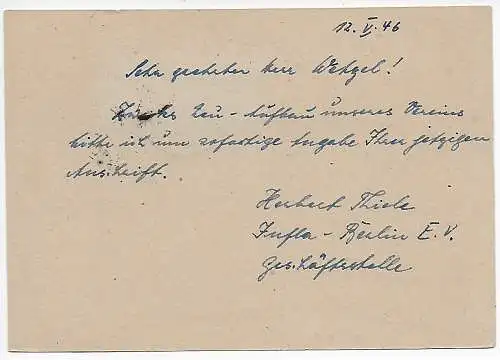 12. V. 46
Sehr geehrter Herr Wetzel!
Zwecks Neu-Aufbau unseres Vereins
bitte ich um sofortige Angabe Ihrer jetzigen
Anschrift.
Herbert Thiele
Infla-Berlin E.V.
Geschäftsstelle